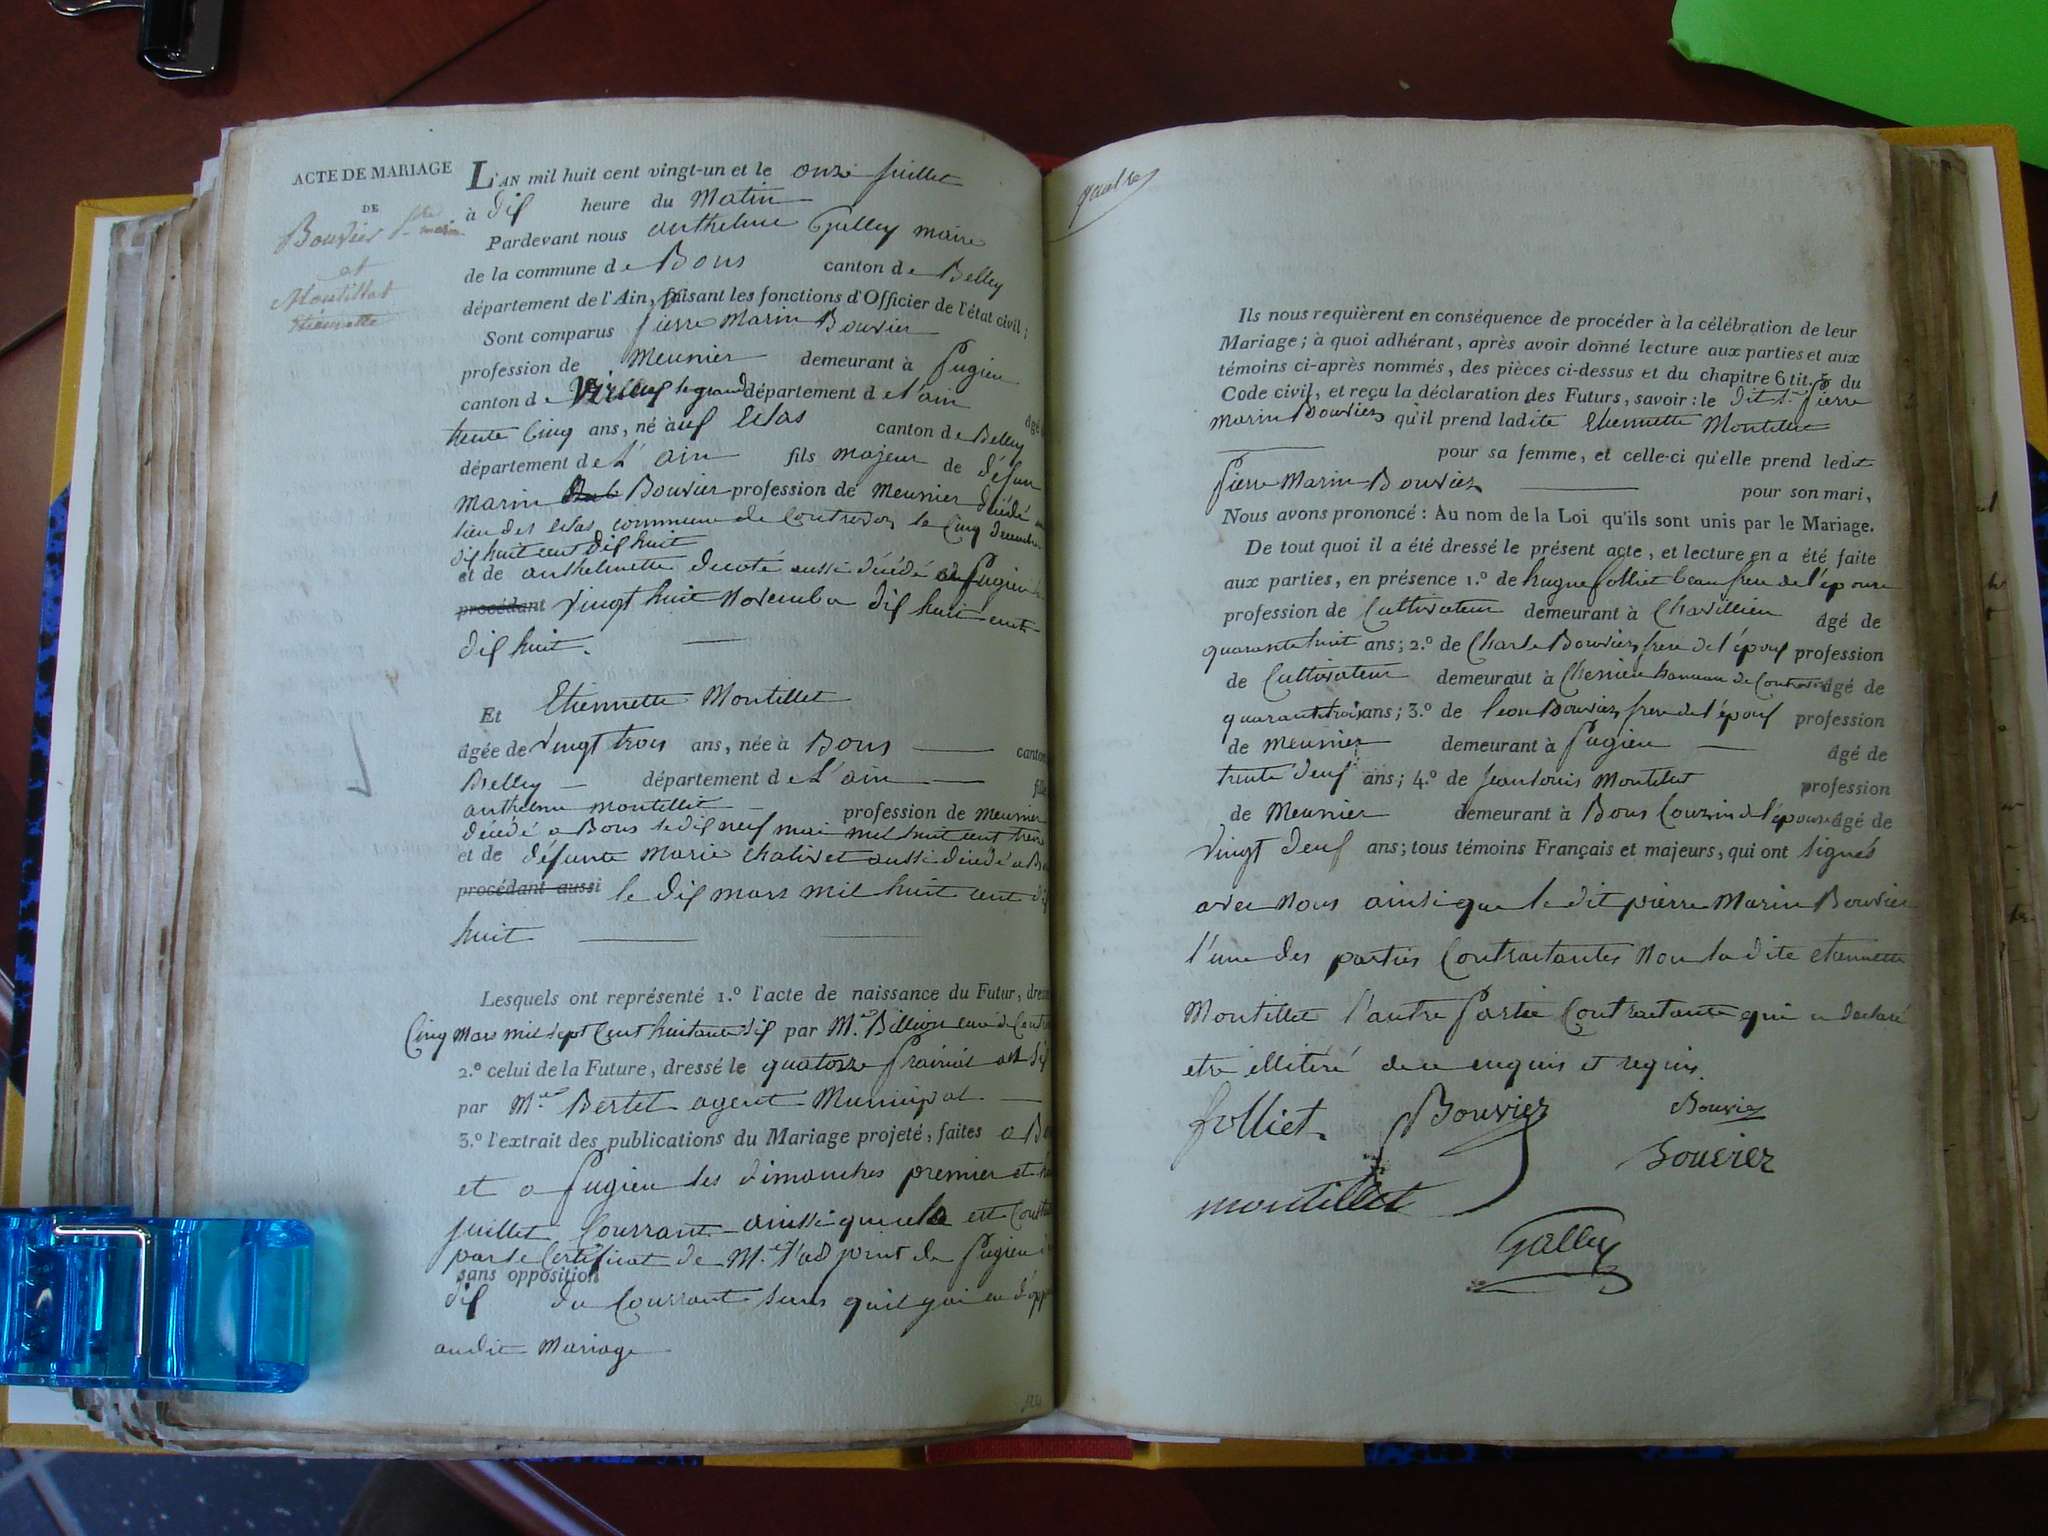 ACTE DE MARIAGE
DE
Bouvier Pre marin
et
Montillet
Etiennette
L'AN mil huit cent vingt-un et le onze juillet
à dix heure du Matin
Pardevant nous anthelme Gallay maire
de la commune de Bons canton de Belley
département de l'Ain, faisant les fonctions d'Officier de l'état civil;
Sont comparus pierre Marin Bouvier
profession de Meunier demeurant à Pugieu
canton de Virieux le grand département de l'ain âgé
trente Cinq ans, né aux Eclas canton de Belley
département de L'ain fils majeur de défun
marin Bouvier profession de meunier décédé au
lieu des Eclas commune de Contrevoz le Cinq decembre
dix huit cent dix huit
et de anthelmette Ducoté aussi décédé a Pugieu le
procédant vingt huit Novembre dix huit cent
dix huit.
Et Etiennette Montillet
âgée de vingt trois ans, née à Bons canton
Belley département de L'ain fille
anthelme montillet profession de Meunier
décédé a Bons le dix neuf mai mil huit cent treize
et de défunte Marie Chalivet aussi décédé a Bo
procédant aussi le dix mars mil huit cent dix
huit
Lesquels ont représenté 1.º l'acte de naissance du Futur, dressé
Cinq Mars mil sept Cent huitante six par M.re Billion curé de Contre
2.º celui de la Future, dressé le quatorze prairial an six
par M.re Bertet agent Municipal
3.º l'extrait des publications du Mariage projeté, faites a Bo
et a Pugieu les dimanches premier et hu
juillet Courrant ainssi que cela est Const
par le Certificat de M.r l'adjoint de Pugieu du
sans opposition
dix du Courrant sans quil y ai eu d'oppo
audit Mariage
Ils nous requièrent en conséquence de procéder à la célébration de leur
Mariage; à quoi adhérant, après avoir donné lecture aux parties et aux
témoins ci-après nommés, des pièces ci-dessus et du chapitre 6 tit. 5 du
Code civil, et reçu la déclaration des Futurs, savoir: le dit s.r pierre
Marin Bouvier qu'il prend ladite Etiennette Montillet
pour sa femme, et celle-ci qu'elle prend ledit
pierre Marin Bouvier pour son mari,
Nous avons prononcé: Au nom de la Loi qu'ils sont unis par le Mariage.
De tout quoi il a été dressé le présent acte, et lecture en a été faite
aux parties, en présence 1.º de hugue folliet beau frere de l'épouse
profession de Cultivateur demeurant à Chavillieu âgé de
quarante huit ans; 2.º de Charle Bouvier, frere de l'époux profession
de Cultivateur demeurant à Chenieu hameau de Contrevoz âgé de
quarante trois ans; 3.º de leon Bouvier, frere de l'époux profession
de meunier demeurant à Pugieu âgé de
trente deux ans; 4.º de Jean louis Montillet profession
de Meunier demeurant à Bons Couzin de l'épouse âgé de
vingt deux ans; tous témoins Français et majeurs, qui ont signés
avec Nous ainsi que le dit pierre Marin Bouvier
l'une des parties Contractantes Non la dite etiennette
Montillet l'autre Partie Contractante qui a declaré
etre illitéré de ce enquis et requis.
folliet Bouvier Bouvier
Bouvier
montillet
Gallay